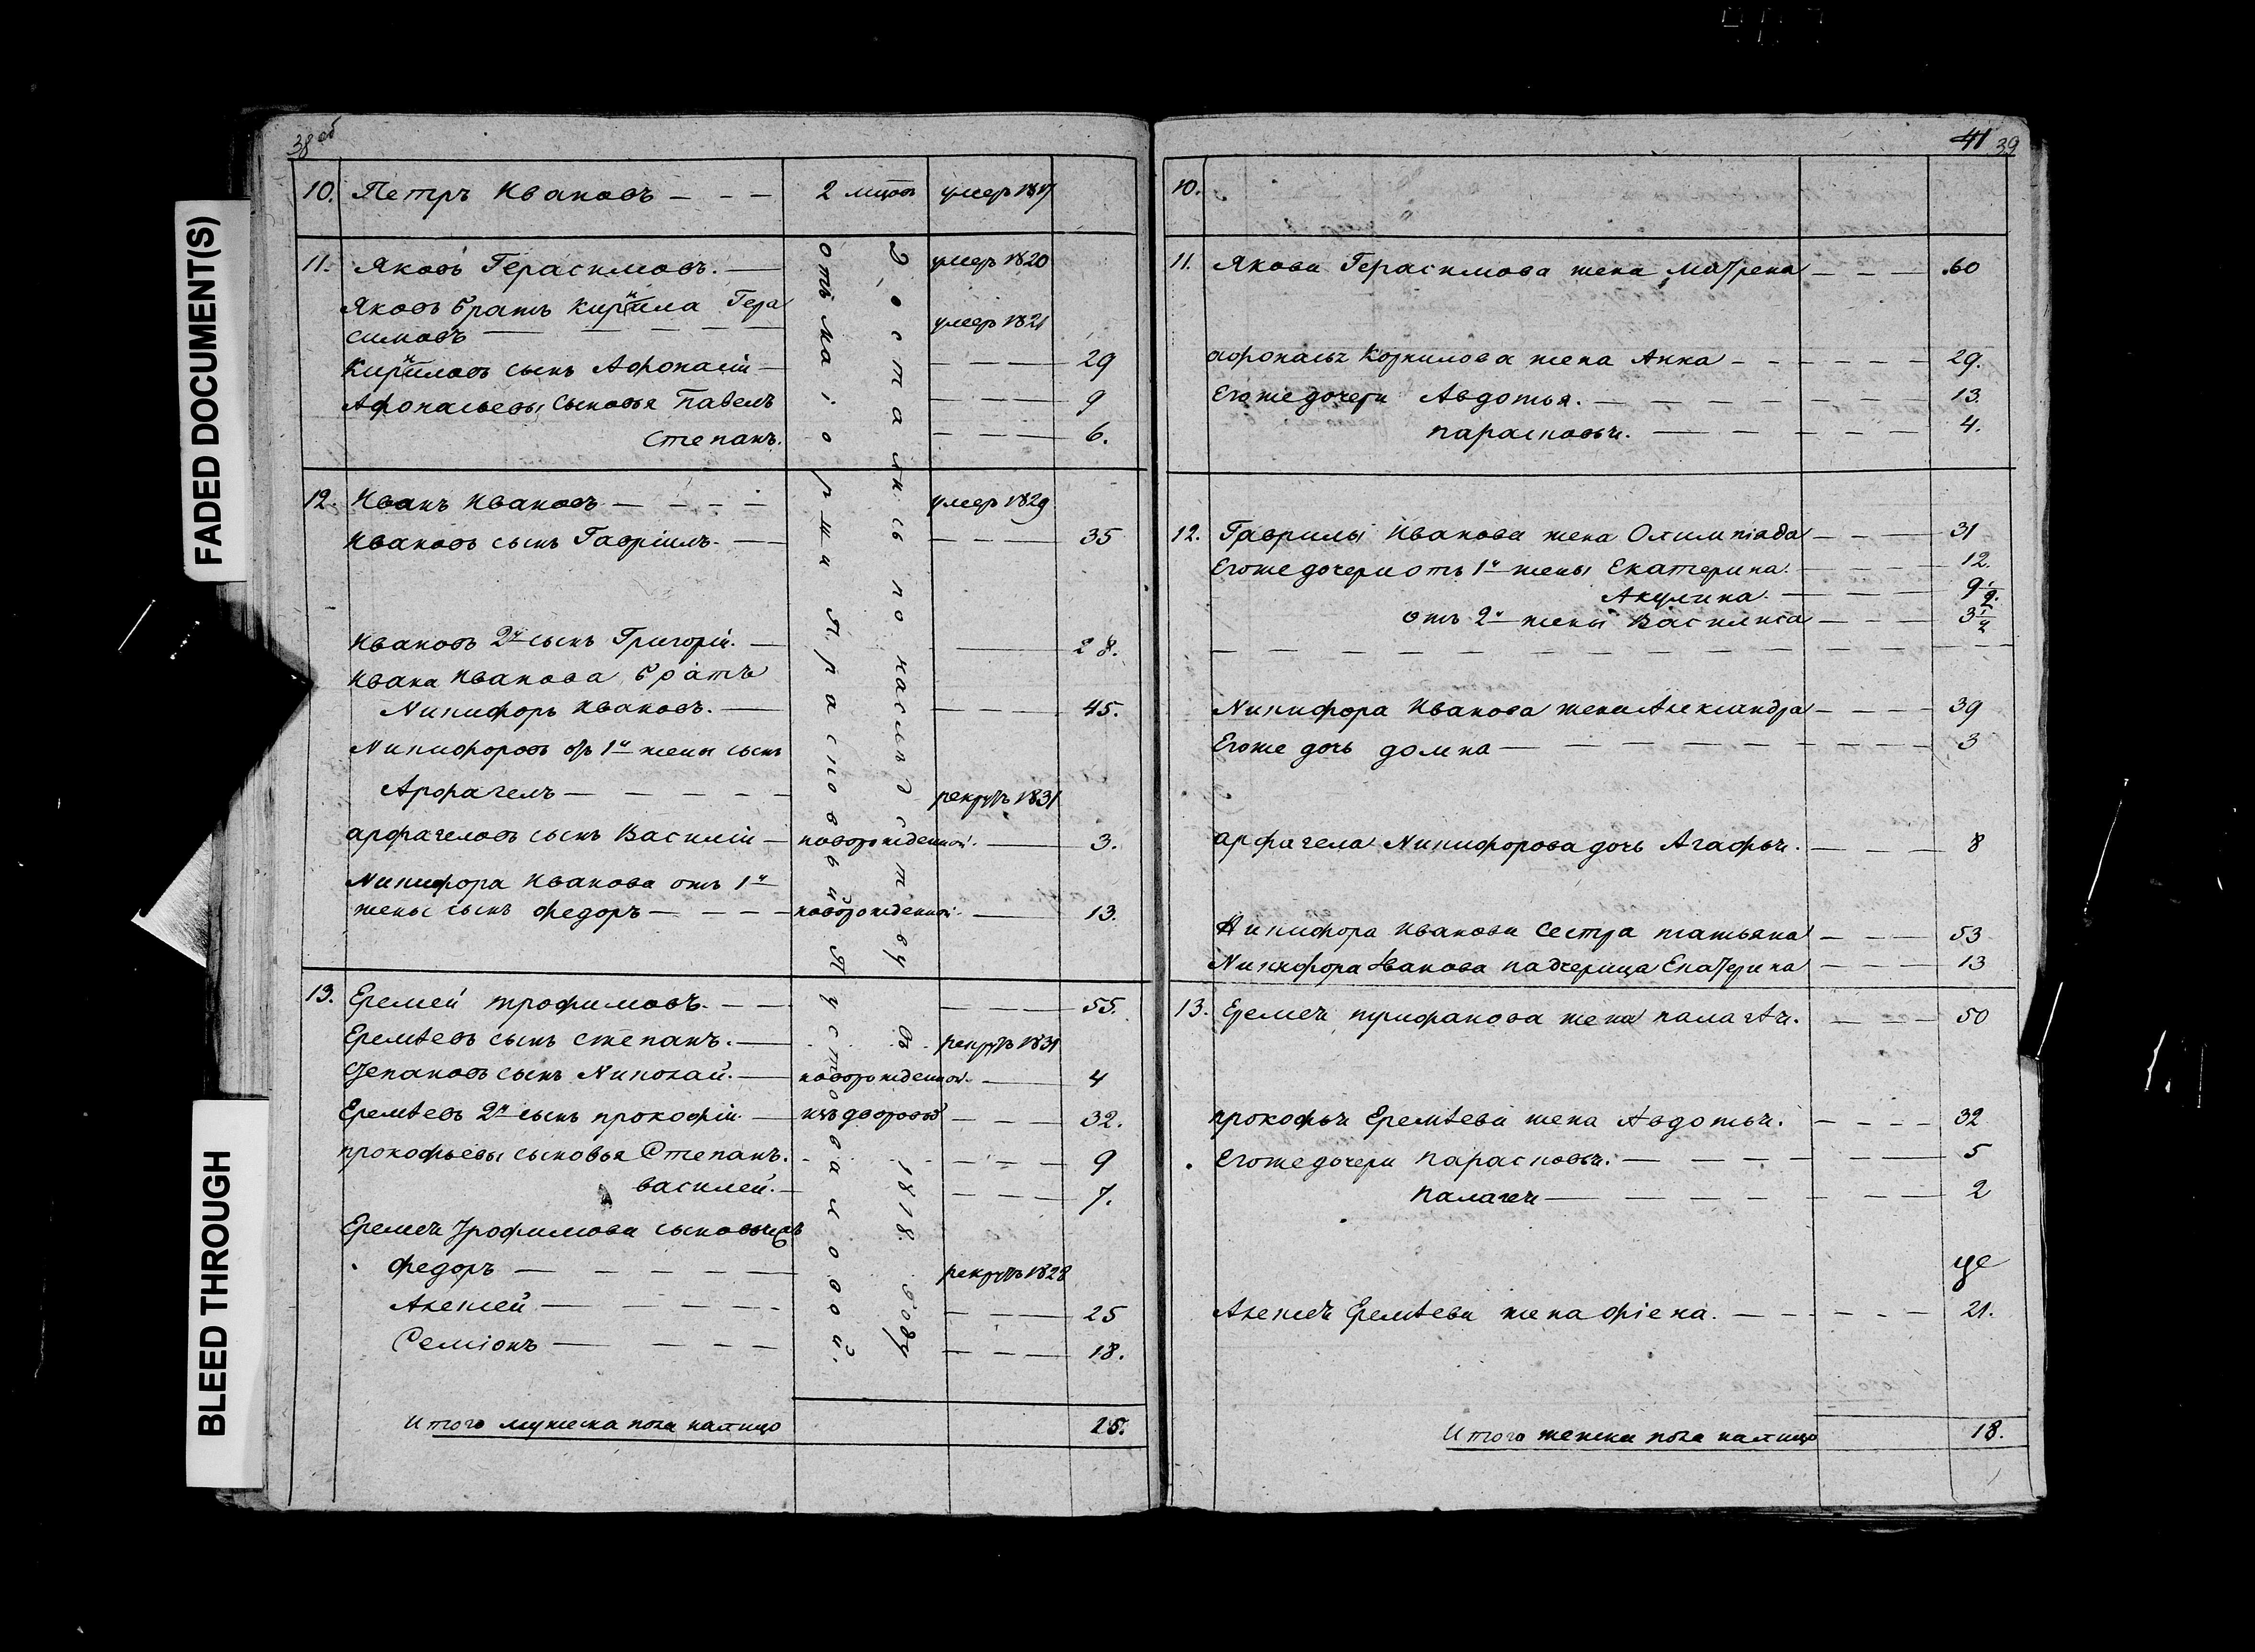 FADED DOCUMENT(S)
BLEED THROUGH
38 об
10. Петръ Ивановъ 2 мцовъ умеръ 1817
11. Яковъ Герасимовъ. умеръ 1820
Яковъ братъ Кирила Гера
симовъ умеръ 1821
Кириловъ сынъ Афонасій 29
Афонасьевы сыновья Павелъ 9
Степанъ. 6.
12. Иванъ Ивановъ умеръ 1829
Ивановъ сынъ Гавріилъ 35
Ивановъ 2й сынъ Григорій. 28.
Ивана Иванова братъ
Никифоръ Ивановъ. 45.
Никифоровъ отъ 1й жены сынъ
Арфагелъ рекрутъ 1831
арфагеловъ сынъ Василій новорожденной 3.
Никифора Иванова отъ 1й
жены сынъ Федоръ новорожденной 13.
13. Еремей трофимовъ 55.
Еремѣевъ сынъ степанъ. рекрутъ 1831
Степановъ сынъ Николай. новорожденной 4
Еремѣевъ 2й сынъ прокофій изъ дворовыхъ 32.
прокофьевы сыновья Степанъ. 9
василей. 7.
Еремея Трофимова сыновья
Федоръ рекрутъ 1828
Алексей 25
Семіонъ 18.
Итого мужеска пола налицо 25.
отъ маіоржи Прасковьи
остались по наслѣдству
въ 1818 году
41 39
10.
11. Якова Герасимова жена Матрена 60
афонасья Корнилова жена Анна 29.
Егоже дочери Авдотья. 13.
парасковья. 4.
12. Гаврилы Иванова жена Олимпіада 31
Егоже дочери отъ 1й жены Екатерина. 12.
Акулина. 9 1/2.
отъ 2й жены Василиса 3 1/2
Никифора Иванова жена Александра 39
Егоже дочь домна 3
арфагела Никифорова дочь Агафья. 8
Никифора Иванова сестра татьяна 53
Никифора Иванова падчерица Екатерина 13
13. Еремея трифанова жена палагѣя. 50
прокофья Еремѣева жена Авдотья. 32
Егоже дочери парасковья. 5
палагея 2
Алексѣя Еремѣева жена фіена. 21.
Итого женска пола налицо 18.